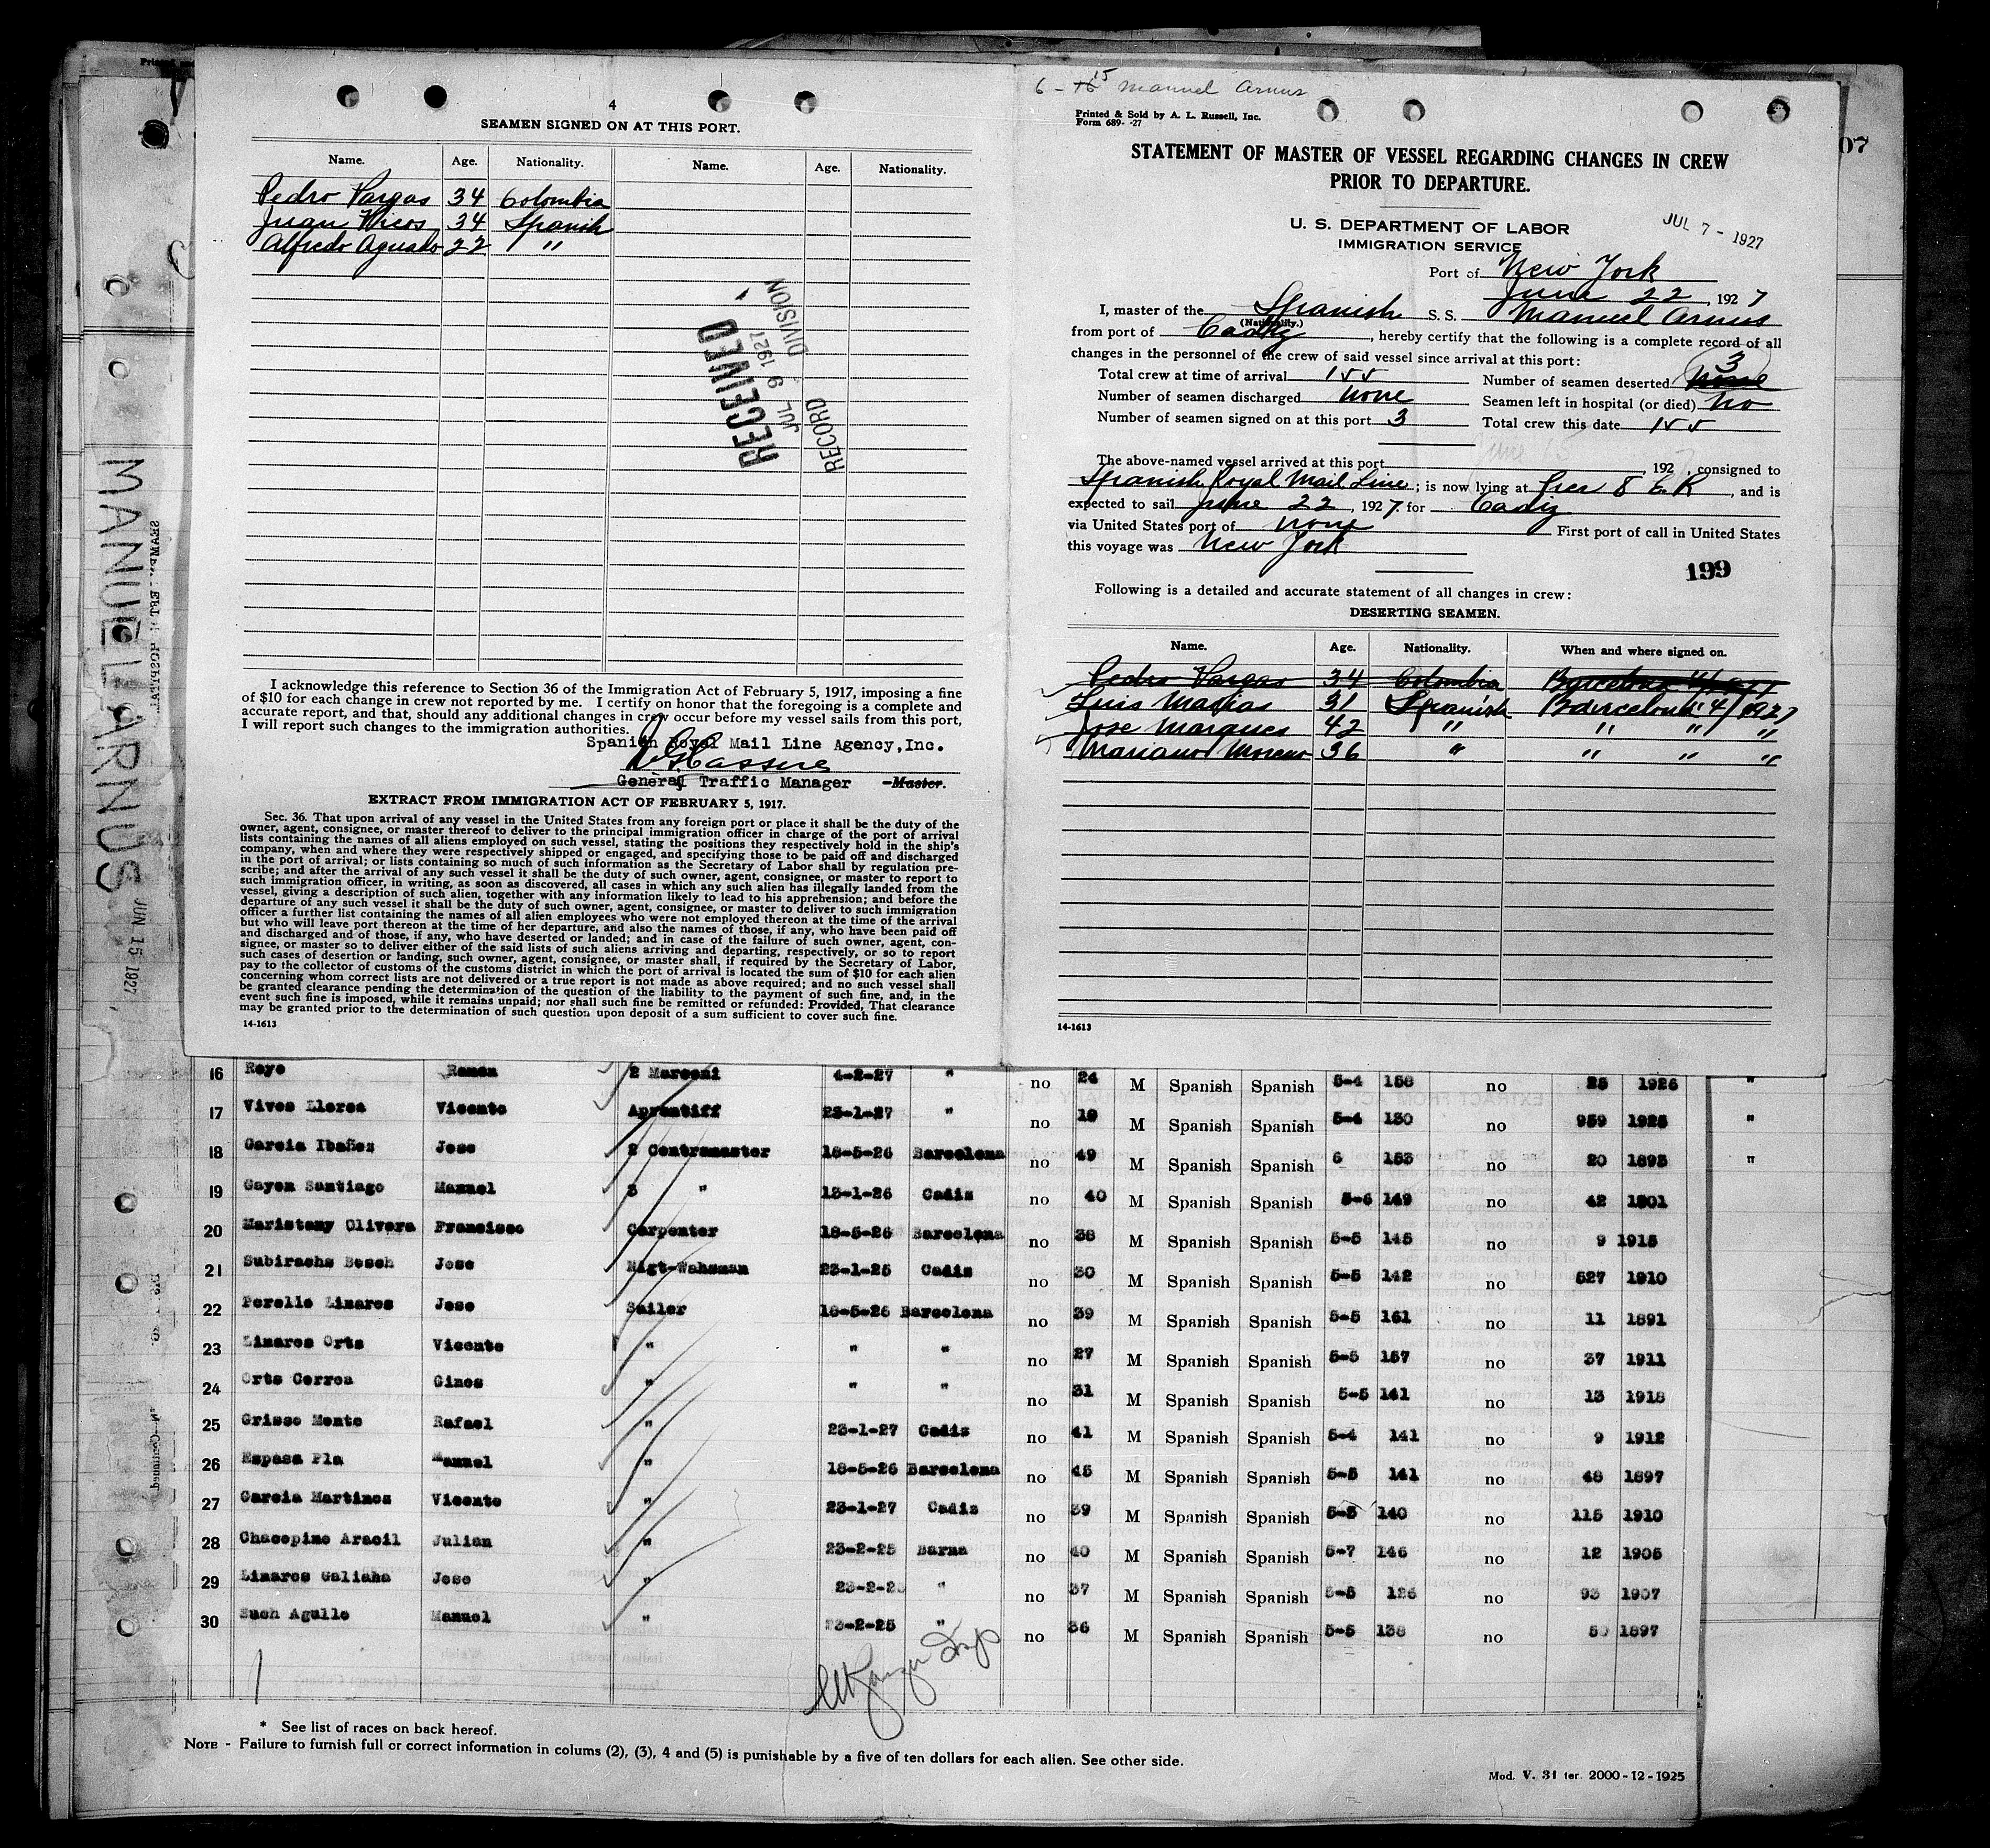 4
SEAMEN SIGNED ON AT THIS PORT.
Name. Age. Nationality. Name. Age. Nationality.
Pedro Vargas 34 Colombia
Juan 34 Spanish
Alfredo Aguado 22 "
RECEIVED
JUL 9 1927
RECORD DIVISION
I acknowledge this reference to Section 36 of the Immigration Act of February 5, 1917, imposing a fine
of $10 for each change in crew not reported by me. I certify on honor that the foregoing is a complete and
accurate report, and that, should any additional changes in crew occur before my vessel sails from this port,
I will report such changes to the immigration authorities.
Spanish Royal Mail Line Agency, Inc.
General Traffic Manager Master.
EXTRACT FROM IMMIGRATION ACT OF FEBRUARY 5, 1917.
Sec. 36. That upon arrival of any vessel in the United States from any foreign port or place it shall be the duty of the
owner, agent, consignee, or master thereof to deliver to the principal immigration officer in charge of the port of arrival
lists containing the names of all aliens employed on such vessel, stating the positions they respectively hold in the ship's
company, when and where they were respectively shipped or engaged, and specifying those to be paid off and discharged
in the port of arrival; or lists containing so much of such information as the Secretary of Labor shall by regulation pre-
scribe; and after the arrival of any such vessel it shall be the duty of such owner, agent, consignee, or master to report to
such immigration officer, in writing, as soon as discovered, all cases in which any such alien has illegally landed from the
vessel, giving a description of such alien, together with any information likely to lead to his apprehension; and before the
departure of any such vessel it shall be the duty of such owner, agent, consignee, or master to deliver to such immigration
officer a further list containing the names of all alien employees who were not employed thereon at the time of the arrival
but who will leave port thereon at the time of her departure, and also the names of those, if any, who have been paid off
and discharged and of those, if any, who have deserted or landed; and in case of the failure of such owner, agent, con-
signee, or master so to deliver either of the said lists of such aliens arriving and departing, respectively, or so to report
such cases of desertion or landing, such owner, agent, consignee, or master shall, if required by the Secretary of Labor,
pay to the collector of customs of the customs district in which the port of arrival is located the sum of $10 for each alien
concerning whom correct lists are not delivered or a true report is not made as above required; and no such vessel shall
be granted clearance pending the determination of the question of the liability to the payment of such fine, and, in the
event such fine is imposed, while it remains unpaid; nor shall such fine be remitted or refunded: Provided, That clearance
may be granted prior to the determination of such question upon deposit of a sum sufficient to cover such fine.
14-1613
6 - 15 Manuel Arnus
Printed & Sold by A. L. Russell, Inc.
Form 689- -27
STATEMENT OF MASTER OF VESSEL REGARDING CHANGES IN CREW
PRIOR TO DEPARTURE.
U. S. DEPARTMENT OF LABOR
IMMIGRATION SERVICE
JUL 7 - 1927
Port of New York
June 22, 1927
I, master of the Spanish S. S. Manuel Arnus
(Nationality.)
from port of Cadiz, hereby certify that the following is a complete record of all
changes in the personnel of the crew of said vessel since arrival at this port:
Total crew at time of arrival 155 Number of seamen deserted none 3
Number of seamen discharged none Seamen left in hospital (or died) no
Number of seamen signed on at this port 3 Total crew this date 155
The above-named vessel arrived at this port , 192 , consigned to
Spanish Royal Mail Line; is now lying at Pier 8 E R, and is
expected to sail June 22, 1927 for Cadiz
via United States port of none First port of call in United States
this voyage was New York
199
Following is a detailed and accurate statement of all changes in crew:
DESERTING SEAMEN.
Name. Age. Nationality. When and where signed on.
Pedro Vargas 34 Colombia Barcelona
Luis Macias 31 Spanish Barcelona 4/1927
Jose Marques 42 " " " "
Mariano Moreno 36 " " " "
14-1613
07
MANUEL ARNUS
JUN 15 1927
16 Reyo Ramon 2 Marconi 4-2-27 " no 24 M Spanish Spanish 5-4 158 no 25 1926 "
17 Vives Llorca Vicente Aprentiff 23-1-27 " no 19 M Spanish Spanish 5-4 130 no 959 1925 "
18 Garcia Ibañez Jose 2 Contramaster 18-5-26 Barcelona no 49 M Spanish Spanish 6 153 no 20 1893 "
19 Gayon Santiago Manuel 3 " 13-1-26 Cadiz no 40 M Spanish Spanish 5-6 149 no 42 1901
20 Maristany Olivera Francisco Carpenter 18-5-26 Barcelona no 38 M Spanish Spanish 5-5 145 no 9 1915
21 Subirachs Bosch Jose Nigt-Wahsman 23-1-25 Cadiz no 30 M Spanish Spanish 5-5 142 no 527 1910
22 Perello Linares Jose Sailor 18-5-26 Barcelona no 39 M Spanish Spanish 5-5 161 no 11 1891
23 Linares Orts Vicente " " " no 27 M Spanish Spanish 5-5 157 no 37 1911
24 Orts Correa Gines " " " no 31 M Spanish Spanish 5-5 141 no 13 1918
25 Grisso Monto Rafael " 23-1-27 Cadiz no 41 M Spanish Spanish 5-4 141 no 9 1912
26 Espasa Pla Manuel " 18-5-26 Barcelona no 45 M Spanish Spanish 5-5 141 no 48 1897
27 Garcia Martinez Vicente " 23-1-27 Cadiz no 39 M Spanish Spanish 5-5 140 no 115 1910
28 Chacopino Aracil Julian " 23-2-25 Barna no 40 M Spanish Spanish 5-7 146 no 12 1905
29 Linares Galiana Jose " 23-2-25 " no 37 M Spanish Spanish 5-5 126 no 93 1907
30 Such Agullo Manuel " 23-2-25 " no 36 M Spanish Spanish 5-5 138 no 50 1897
* See list of races on back hereof.
NOTE - Failure to furnish full or correct information in colums (2), (3), 4 and (5) is punishable by a five of ten dollars for each alien. See other side.
Mod. V. 31 ter. 2000-12-1925